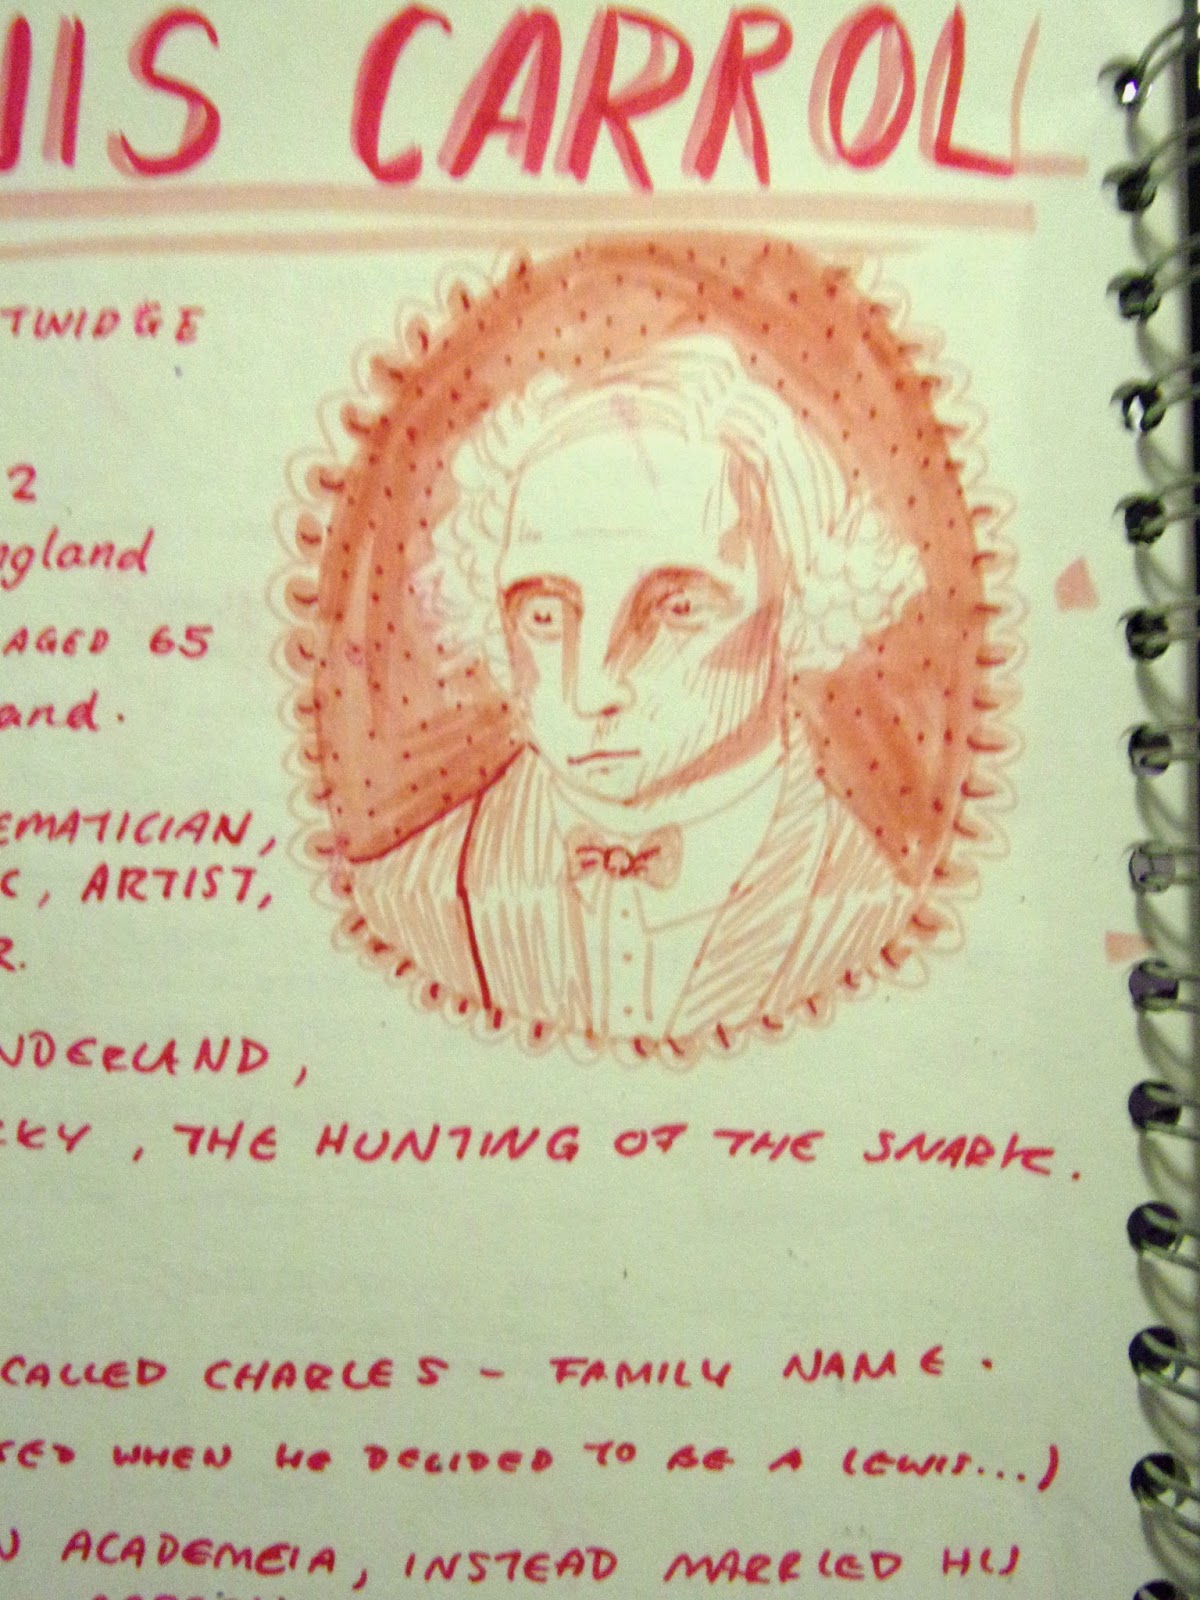 WIS CARROLL
TWIDGE
2
ngland
AGED 65
and.
EMATICIAN,
C, ARTIST,
R.
NDERLAND,
CKY, THE HUNTING OF THE SNARK.
CALLED CHARLES - FAMILY NAME.
SED WHEN HE DECIDED TO BE A LEWIS...)
N ACADEMEIA, INSTEAD MARRIED HIS